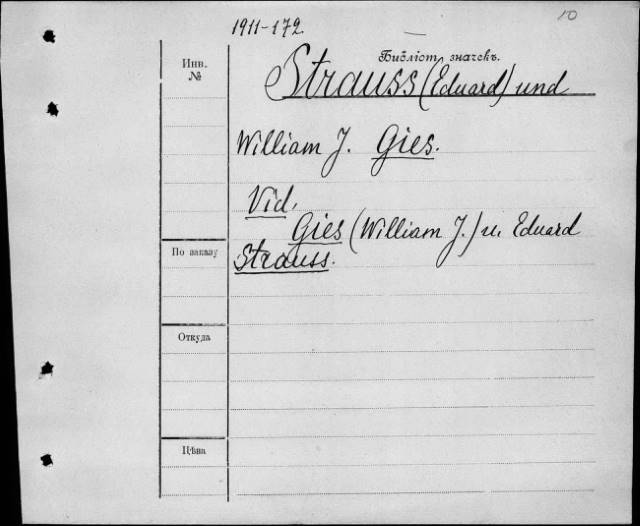 10
1911-172
Библіот. значекъ.
Инв.
№
Strauss (Eduard) und
William J. Gies.
Vid.
Gies (William J.) u. Eduard
Strauss.
По заказу
Откуда
Цѣна